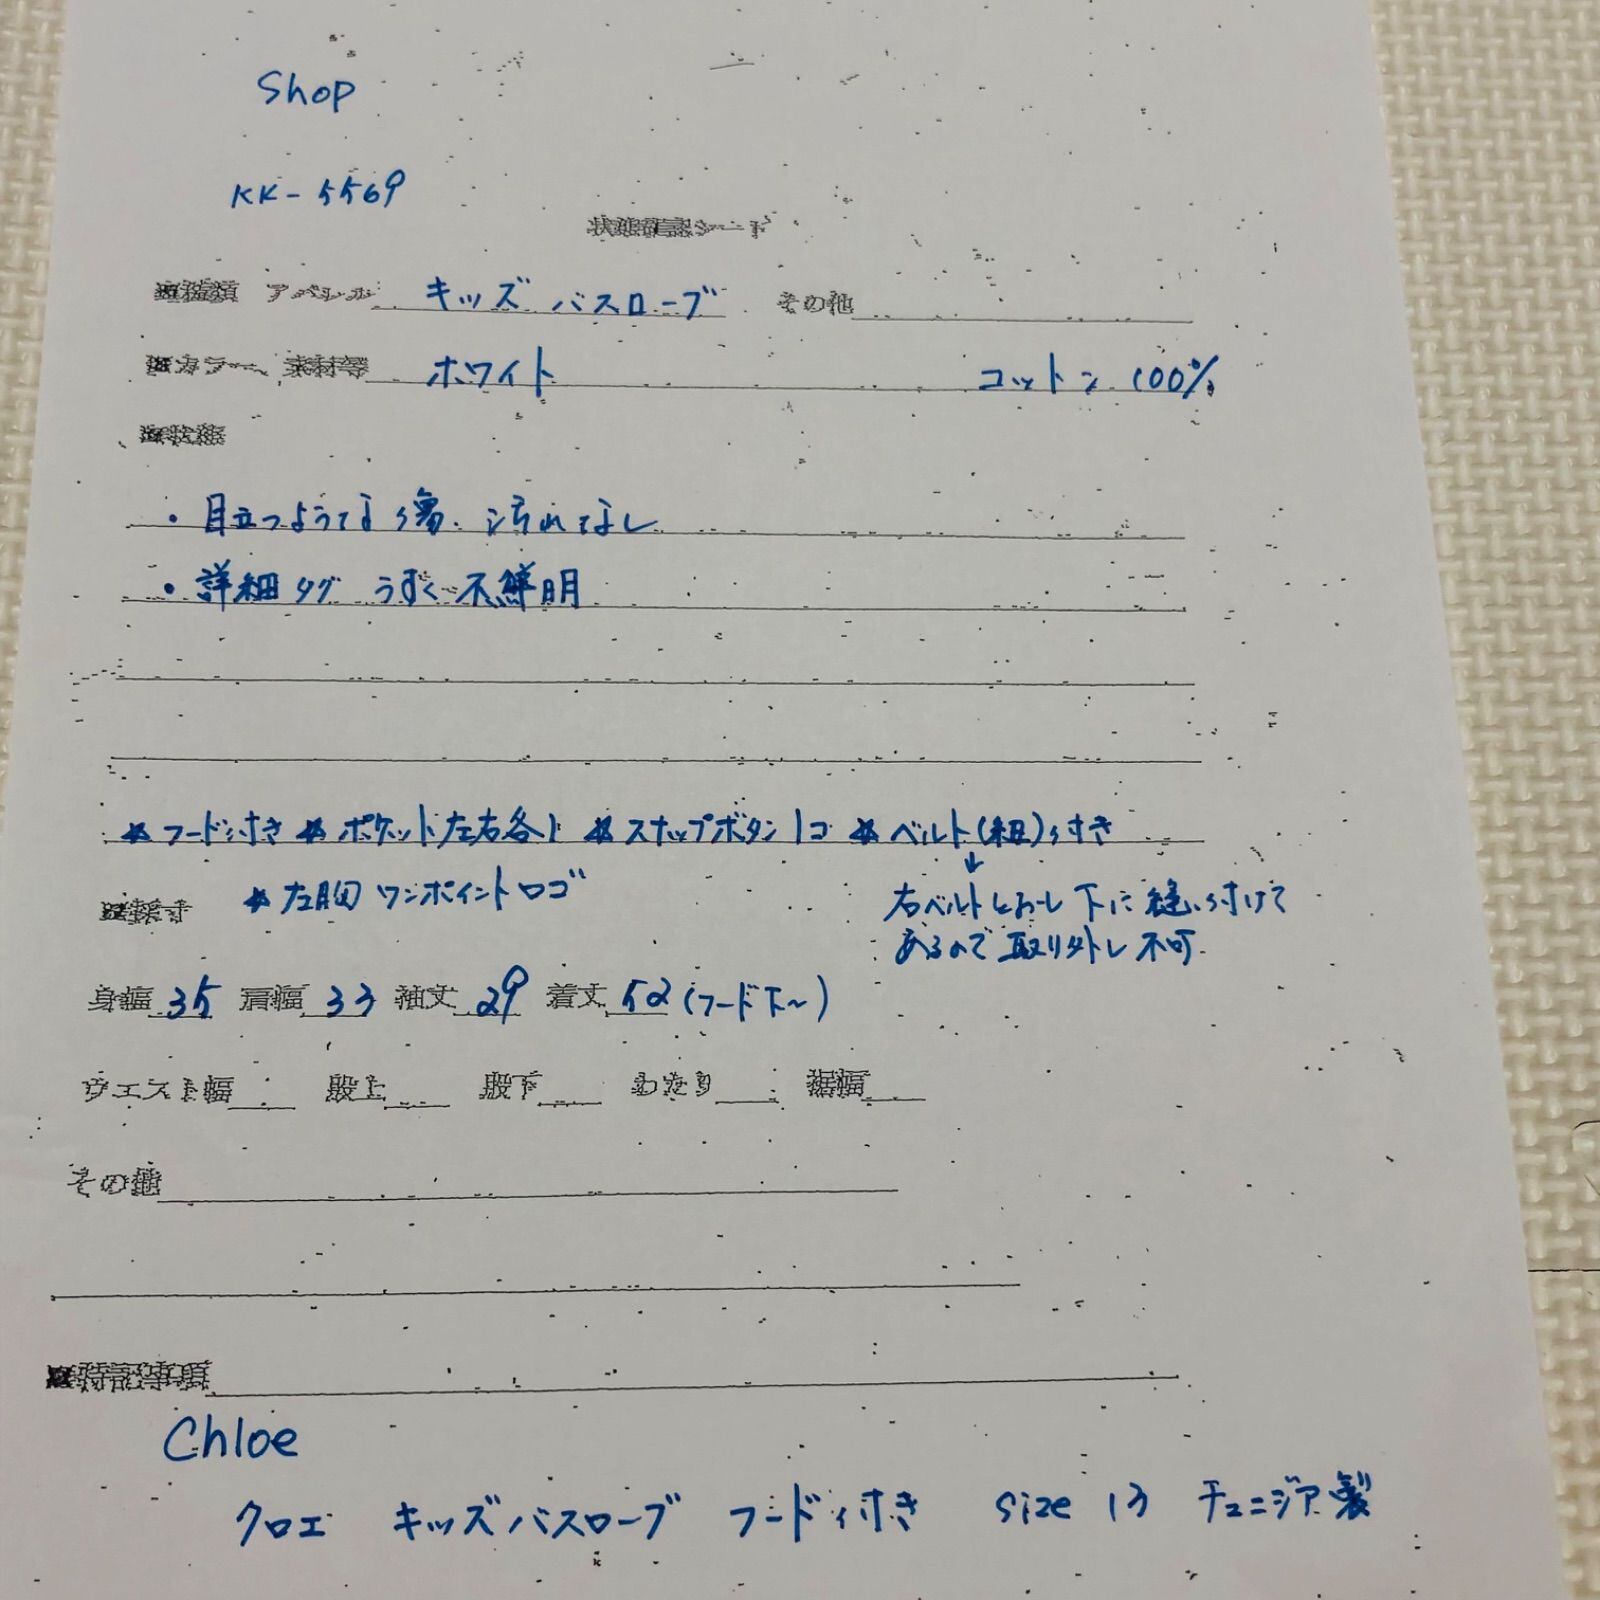 Shop
KK-5569
状態確認シート
■種類 アパレル キッズ バスローブ その他
■カラー、素材等 ホワイト コットン 100%
■状態
・目立つような傷、汚れなし
・詳細タグ うすく不鮮明
★フード付き ★ポケット左右各1 ★スナップボタン1コ ★ベルト(紐)付き
↓
■採寸 ★左胸ワンポイントロゴ 右ベルトとおし下に縫い付けて
あるので取り外し不可.
身幅 35 肩幅 33 袖丈 29 着丈 52 (フード下〜)
ウエスト幅 股上 股下 わたり 裾幅
その他
■特記事項
Chloe
クロエ キッズバスローブ フード付き size 13 チュニジア製